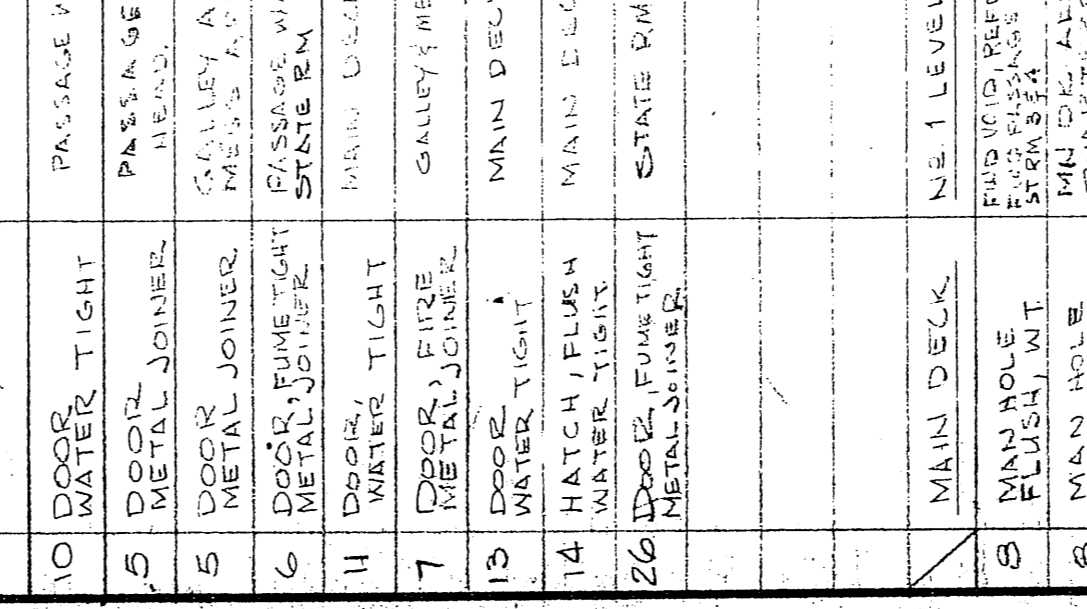 10 DOOR WATER TIGHT PASSAGE
5 DOOR METAL JOINER PASSAGE
5 DOOR METAL JOINER GALLEY
6 DOOR, FUME TIGHT METAL JOINER PASSAGE STATE RM
11 DOOR, WATER TIGHT MAIN
7 DOOR, FIRE METAL JOINER GALLEY &
13 DOOR WATER TIGHT MAIN
14 HATCH, FLUSH WATER TIGHT MAIN
26 DOOR, FUME TIGHT METAL JOINER STATE RM
MAIN DECK NO. 1
MAN HOLE FLUSH, WT FWD VOID, STRM
MAN HOLE MN DK.